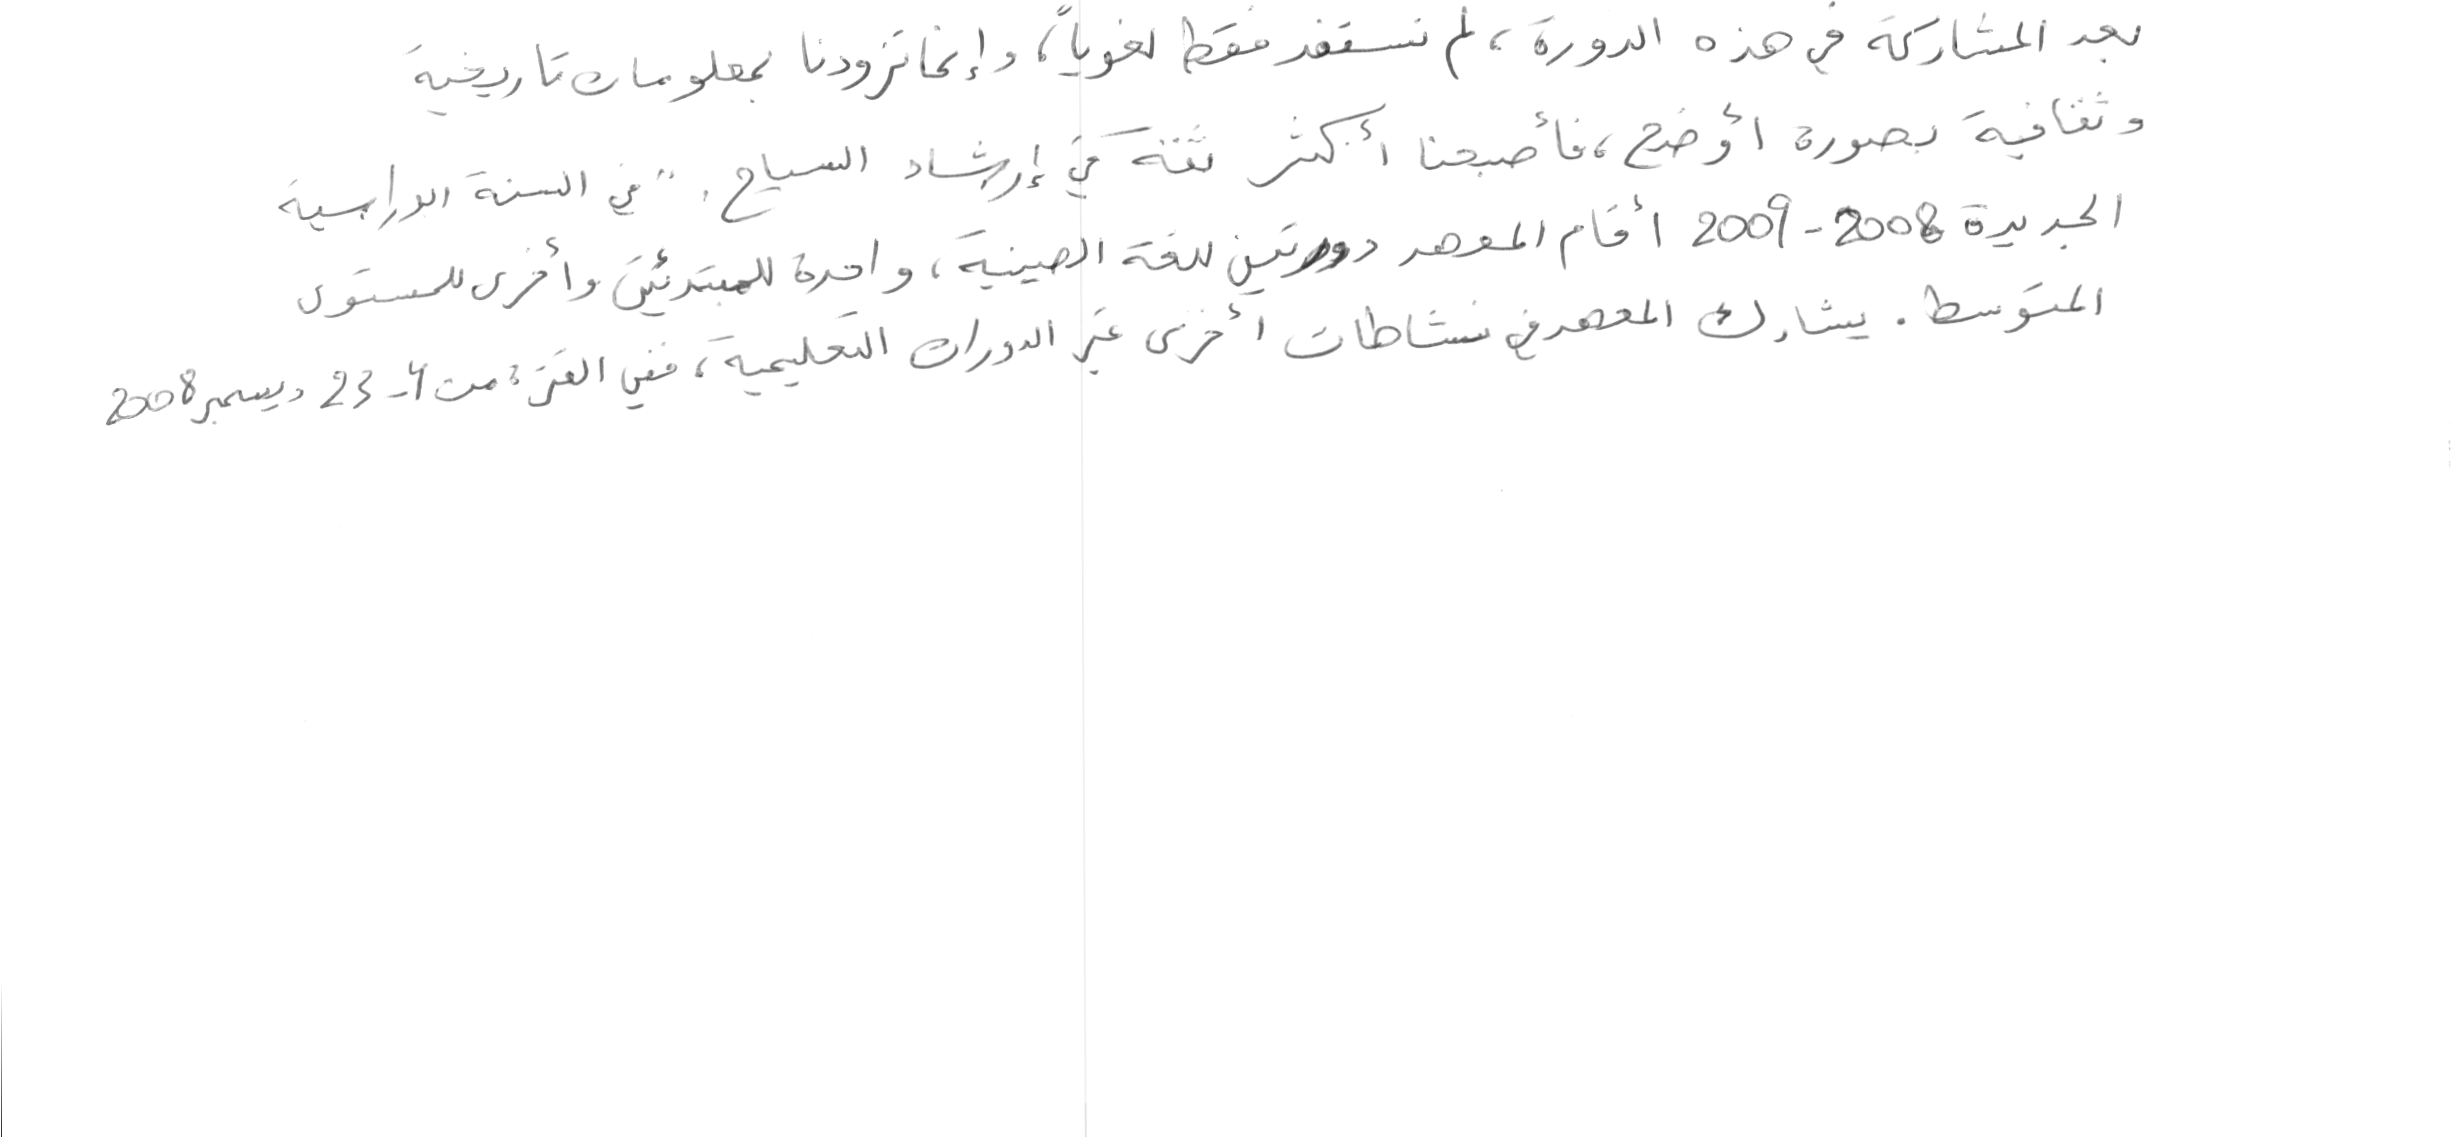 بعد المشاركة في هذه الدورة، لم نستفد فقط لغوياً، وإنما تزودنا بمعلومات تاريخية
وثقافية بصورة أوضح، فأصبحنا أكثر ثقة في إرشاد السياح. " في السنة الدراسية
الجديدة 2008-2009 أقام المعهد دورتين للغة الصينية، واحدة للمبتدئين وأخرى للمستوى
المتوسط. يشارك المعهد في نشاطات أخرى غير الدورات التعليمية، ففي الفترة من 4-23 ديسمبر 2008